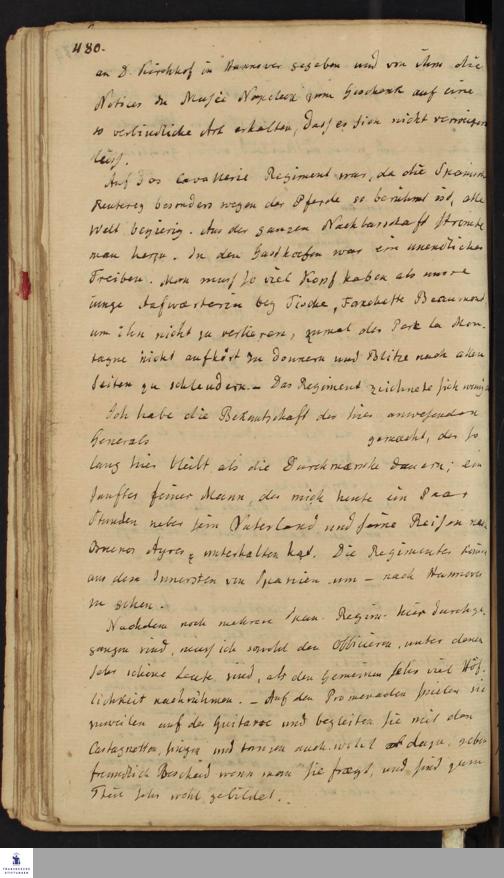 480.
an D. Kirchhof in Hannover gegeben und von ihm die
Notices du Musée Napoleon zum Geschenk auf eine
so verbindliche Art erhalten, dass es sich nicht
läss.
Auf das Cavallerie Regiment war, da die Spanische
Reuterey besonders wegen der Pferde so berühmt ist, alle
Welt begierig. Aus der ganzen Nachbarschaft strömte
man herzu. In den Gasthoefen war ein unendliches
Treiben. Man muss so viel Kopf haben als unsre
junge Aufwärterin bey Tische, Fanchette Beaumond
um ihn nicht zu verlieren, zumal der Park la Mon-
tagne nicht aufhört zu donnern und Blitze nach allen
Seiten zu schleudern. - Das Regiment zeichnete sich
Ich habe die Bekantschaft des hier anwesenden
Generals gemacht, der so
lang hier bleibt als die Durchmärsche dauern; ein
sanfter feiner Mann, der mich heute ein Paar
Stunden ueber sein Vaterland und seine Reisen nach
Buenos Ayres unterhalten hat. Die Regimenter
aus dem Innersten von Spanien um - nach Hannover
zu gehen.
Nachdem noch mehrere Span. Regim. hier durchge-
gangen sind, muss ich sowohl den Officieren, unter denen
sehr schöne Leute sind, als den Gemeinen sehr viel Höf-
lichkeit nachrühmen. - Auf den Promenaden spielen sie
zuweilen auf der Guitarre und begleiten sie mit den
Castagnetten, singen und tanzen auch wohl dazu, geben
freundlich Bescheid wenn man sie frägt, und sind zum
Theil sehr wohl gebildet.
FRANCKESCHE
STIFTUNGEN